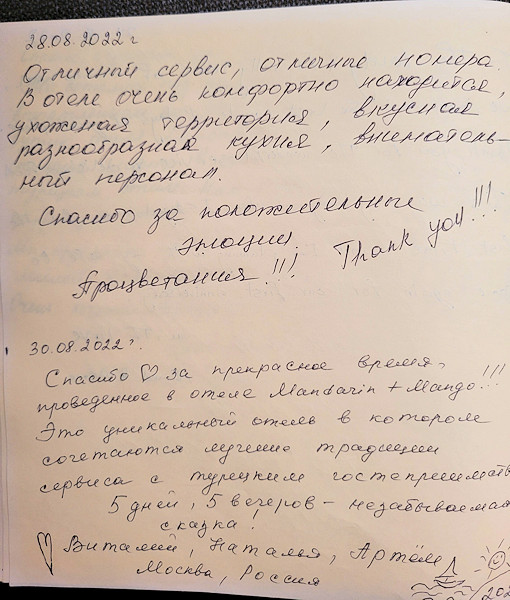 28.08.2022 г
Отличный сервис, отличные номера.
В отеле очень комфортно находится,
ухоженая территория, вкусная
разнообразная кухня, вниматель-
ный персонал.
Спасибо за положительные
эмоции.
Процветания!!! Thank you!!!
30.08.2022г.
Спасибо ♡ за прекрасное время,
проведенное в отеле Mandarin + Mango!!!
Это уникальный отель в котором
сочетаются лучшие традиции
сервиса с турецким гостеприимств
5 дней, 5 вечеров - незабываемая
сказка!
♡ Виталий, Наталья, Артём
Москва, Россия
202